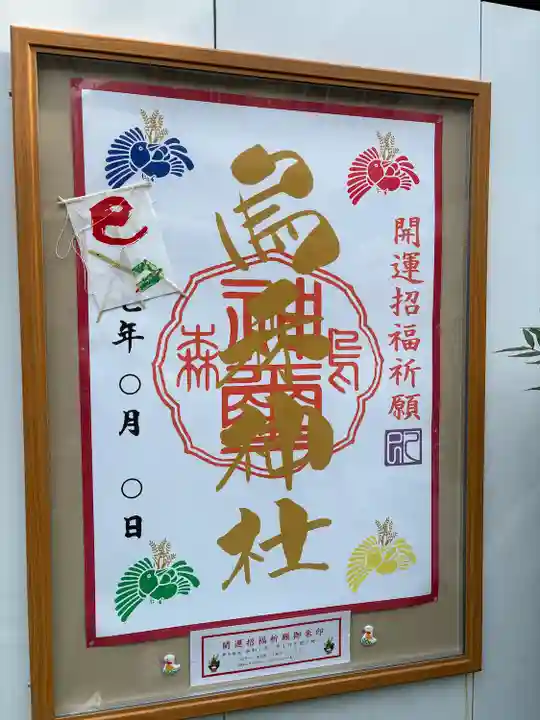 開運招福祈願
烏森神社
烏森
巳
七年〇月〇日
開運招福祈願御朱印